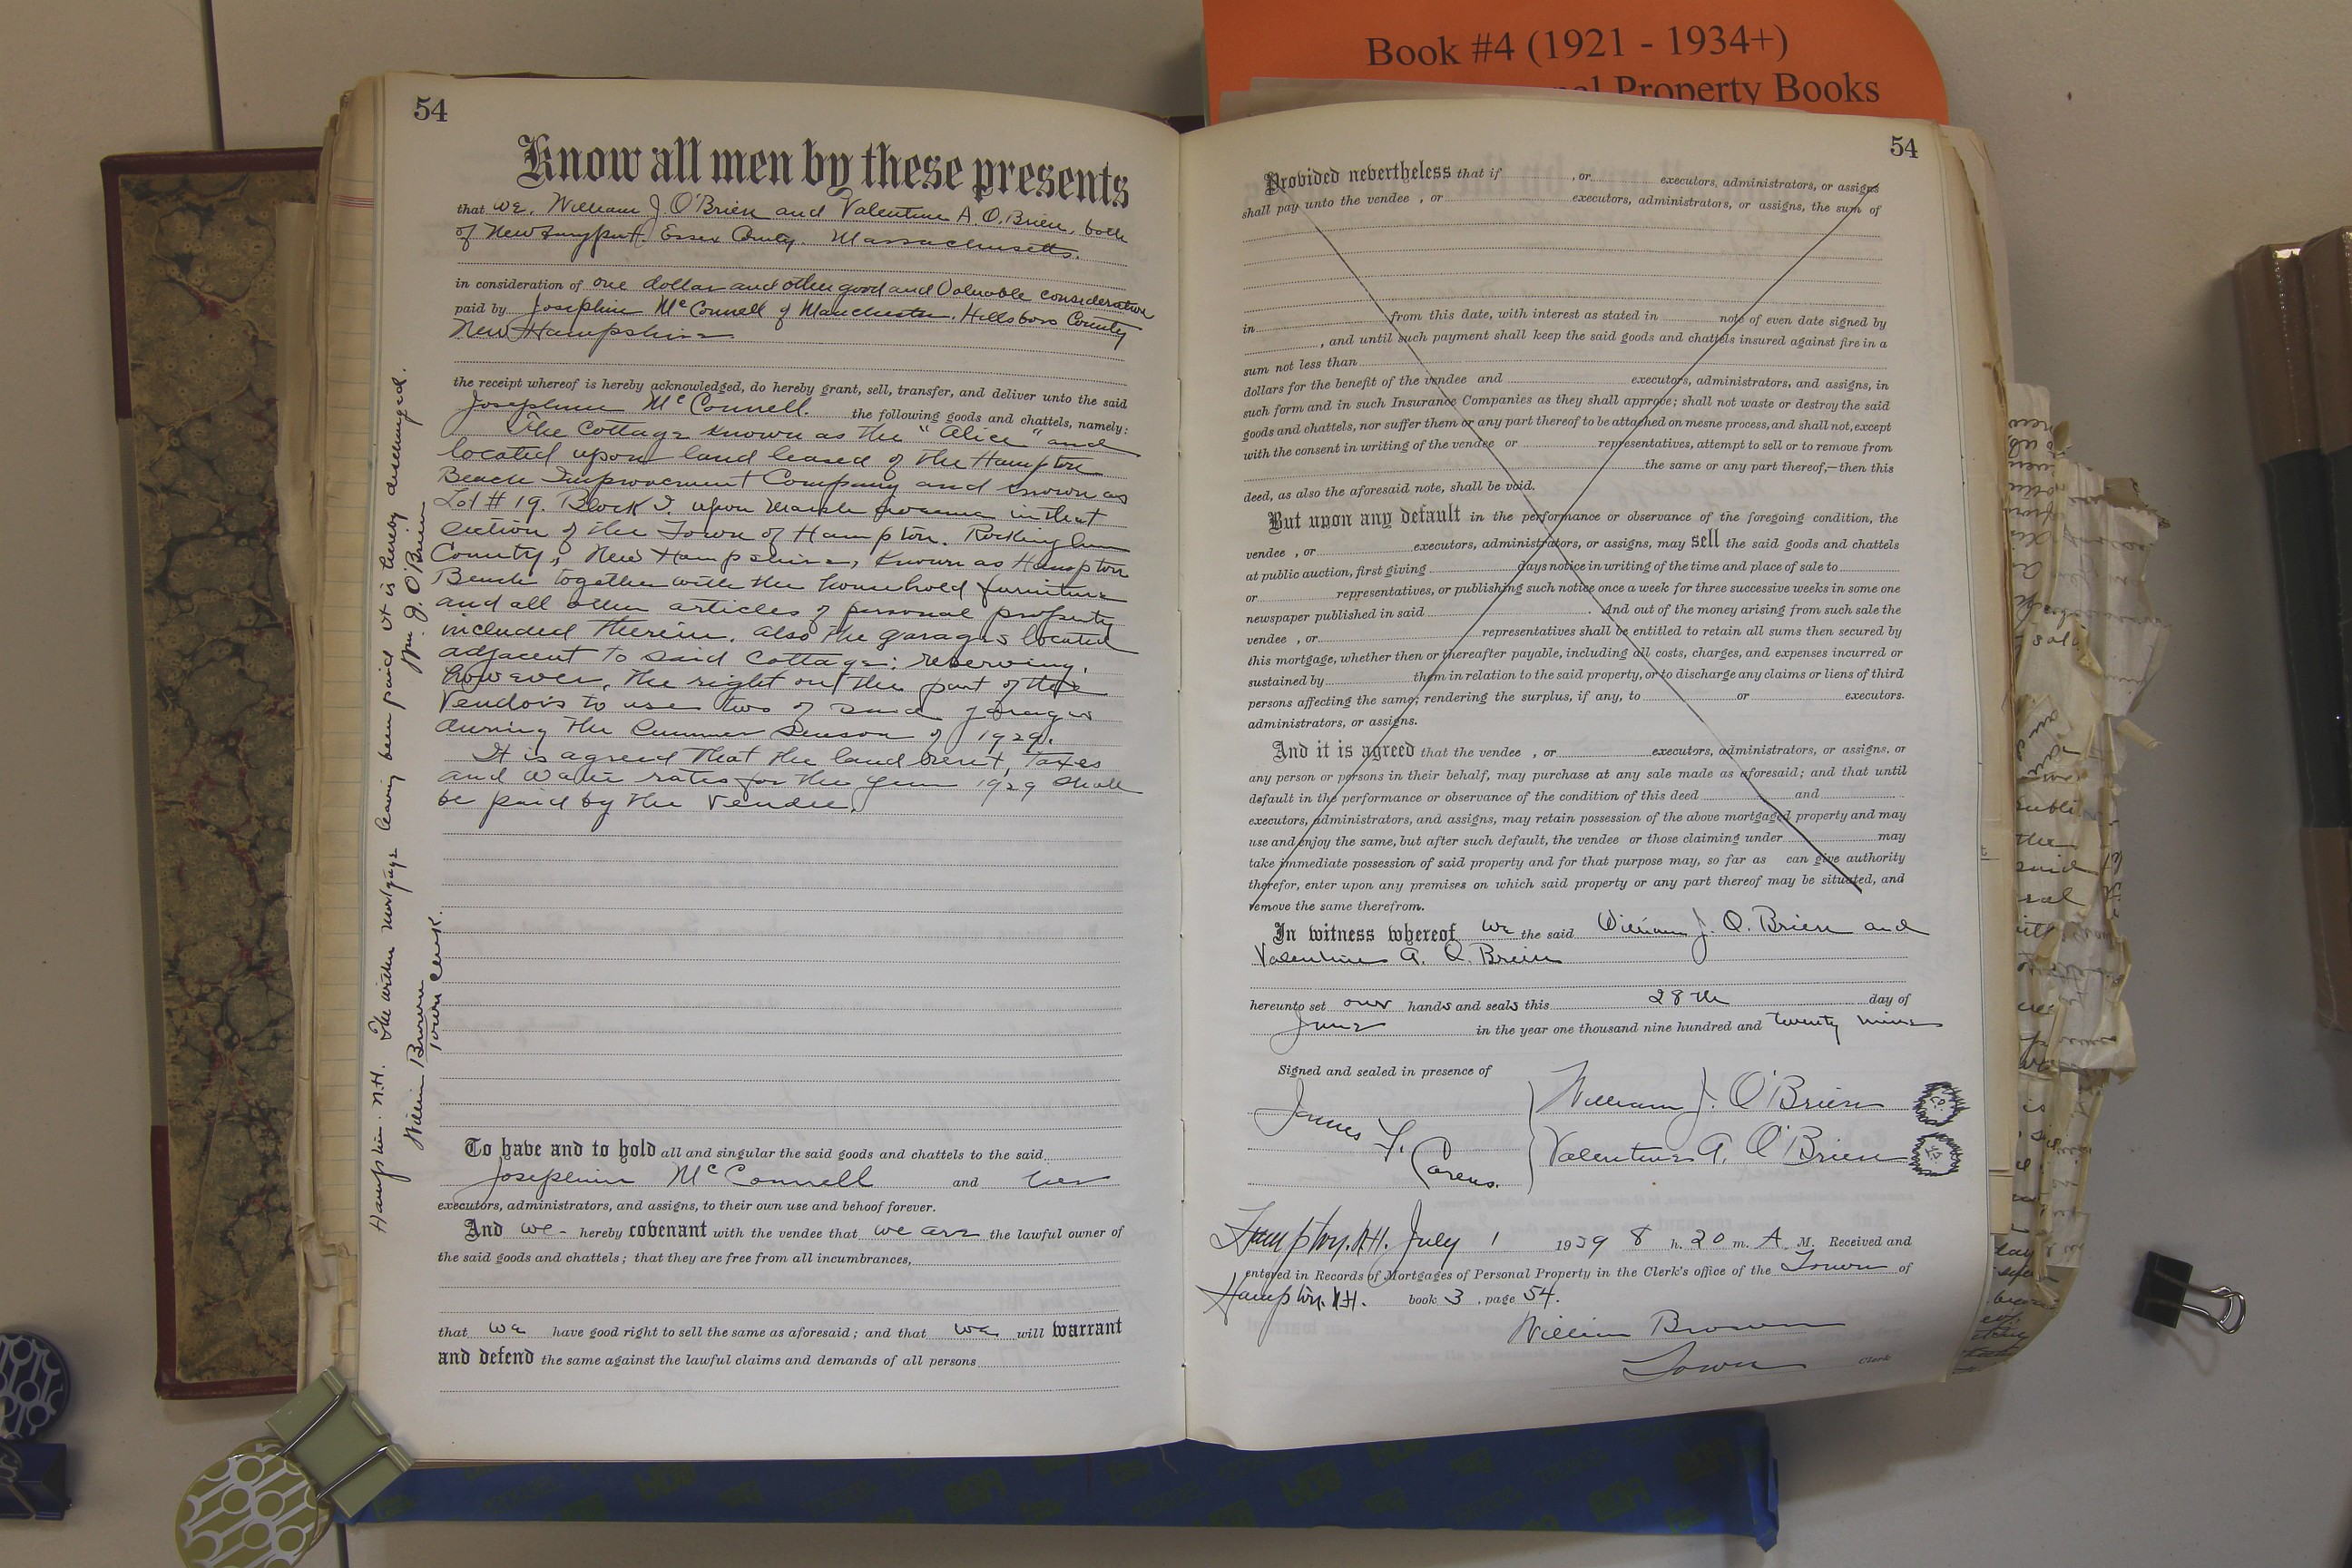 Book #4 (1921 - 1934+)
nal Property Books
54
Know all men by these presents
that we, William J. O'Brien and Valentine A. O'Brien, both
of Newburyport, Essex County, Massachusetts.
in consideration of one dollar and other good and valuable consideration
paid by Josephine McConnell of Manchester, Hillsboro County
New Hampshire
the receipt whereof is hereby acknowledged, do hereby grant, sell, transfer, and deliver unto the said
Josephine McConnell. the following goods and chattels, namely:
The Cottage known as the "Alice" and
located upon land leased of the Hampton
Beach Improvement Company and known as
Lot # 19. Block J. upon Marsh Avenue in that
section of the Town of Hampton. Rockingham
County, New Hampshire, known as Hampton
Beach together with the household furniture
and all other articles of personal property
included therein. also the garages located
adjacent to said cottage: reserving,
however, the right on the part of the
Vendors to use two of said garages
during the Summer Season of 1929.
It is agreed that the land rent, taxes
and water rates for the year 1929 shall
be paid by the Vendee.
To have and to hold all and singular the said goods and chattels to the said
Josephine McConnell and her
executors, administrators, and assigns, to their own use and behoof forever.
And we hereby covenant with the vendee that we are the lawful owner of
the said goods and chattels; that they are free from all incumbrances,
that we have good right to sell the same as aforesaid; and that we will warrant
and defend the same against the lawful claims and demands of all persons
Hampton. N.H. The within mortgage having been paid it is hereby discharged.
Wm. J. O'Brien
William Brown
Town Clerk.
54
Provided nevertheless that if , or executors, administrators, or assigns
shall pay unto the vendee , or executors, administrators, or assigns, the sum of
in from this date, with interest as stated in note of even date signed by
, and until such payment shall keep the said goods and chattels insured against fire in a
sum not less than
dollars for the benefit of the vendee and executors, administrators, and assigns, in
such form and in such Insurance Companies as they shall approve; shall not waste or destroy the said
goods and chattels, nor suffer them or any part thereof to be attached on mesne process, and shall not, except
with the consent in writing of the vendee or representatives, attempt to sell or to remove from
the same or any part thereof,—then this
deed, as also the aforesaid note, shall be void.
But upon any default in the performance or observance of the foregoing condition, the
vendee , or executors, administrators, or assigns, may sell the said goods and chattels
at public auction, first giving days notice in writing of the time and place of sale to
or representatives, or publishing such notice once a week for three successive weeks in some one
newspaper published in said . And out of the money arising from such sale the
vendee , or representatives shall be entitled to retain all sums then secured by
this mortgage, whether then or thereafter payable, including all costs, charges, and expenses incurred or
sustained by them in relation to the said property, or to discharge any claims or liens of third
persons affecting the same; rendering the surplus, if any, to or executors.
administrators, or assigns.
And it is agreed that the vendee , or executors, administrators, or assigns, or
any person or persons in their behalf, may purchase at any sale made as aforesaid; and that until
default in the performance or observance of the condition of this deed and
executors, administrators, and assigns, may retain possession of the above mortgaged property and may
use and enjoy the same, but after such default, the vendee or those claiming under may
take immediate possession of said property and for that purpose may, so far as can give authority
therefor, enter upon any premises on which said property or any part thereof may be situated, and
remove the same therefrom.
In witness whereof we the said William J. O'Brien and
Valentine A. O'Brien
hereunto set our hands and seals this 28th day of
June in the year one thousand nine hundred and twenty nine
Signed and sealed in presence of
James F. Carens.
William J. O'Brien
Valentine A. O'Brien
Hampton. N.H. July 1 1929 8 h. 20 m. A. M. Received and
entered in Records of Mortgages of Personal Property in the Clerk's office of the Town of
Hampton. N.H. book 3 , page 54.
William Brown
Town Clerk